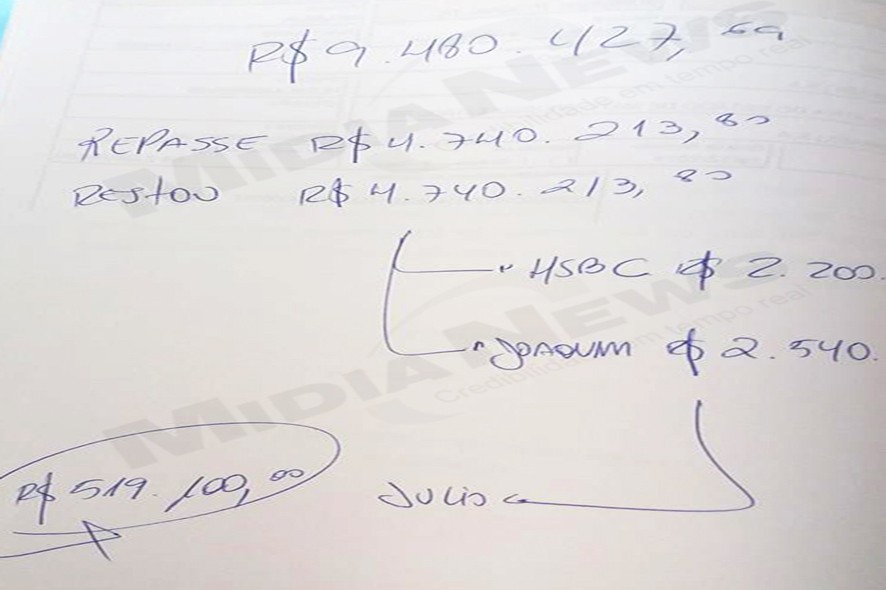 R$ 9.480.427,69
REPASSE R$ 4.740.213,80
RESTOU R$ 4.740.213,80
HSBC R$ 2.200.
JOAQUIM R$ 2.540.
R$ 519.100,00
JULIO
MIDIANEWS
Credibilidade em tempo real
MIDIANEWS
Credibilidade em tempo real